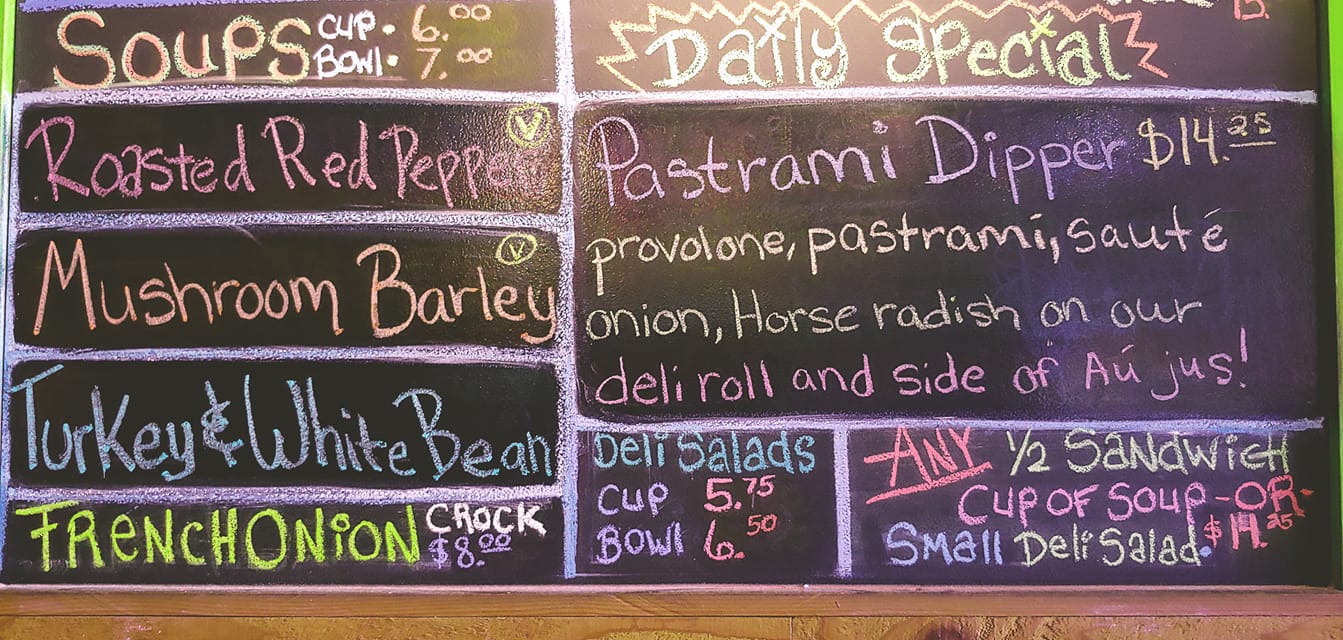 Soups CUP. 6.00
BOWL. 7.00
Roasted Red Pepper V
Mushroom Barley V
Turkey & White Bean
FRENCH ONiON CROCK
$8.00
Daily Special
Pastrami Dipper $14.25
provolone, pastrami, sauté
onion, Horse radish on our
deli roll and side of Aú jus!
Deli Salads
CUP 5.75
BOWl 6.50
ANY 1/2 SANDWicH
CUP OF SOUP -OR-
Small Deli Salad. $14.25